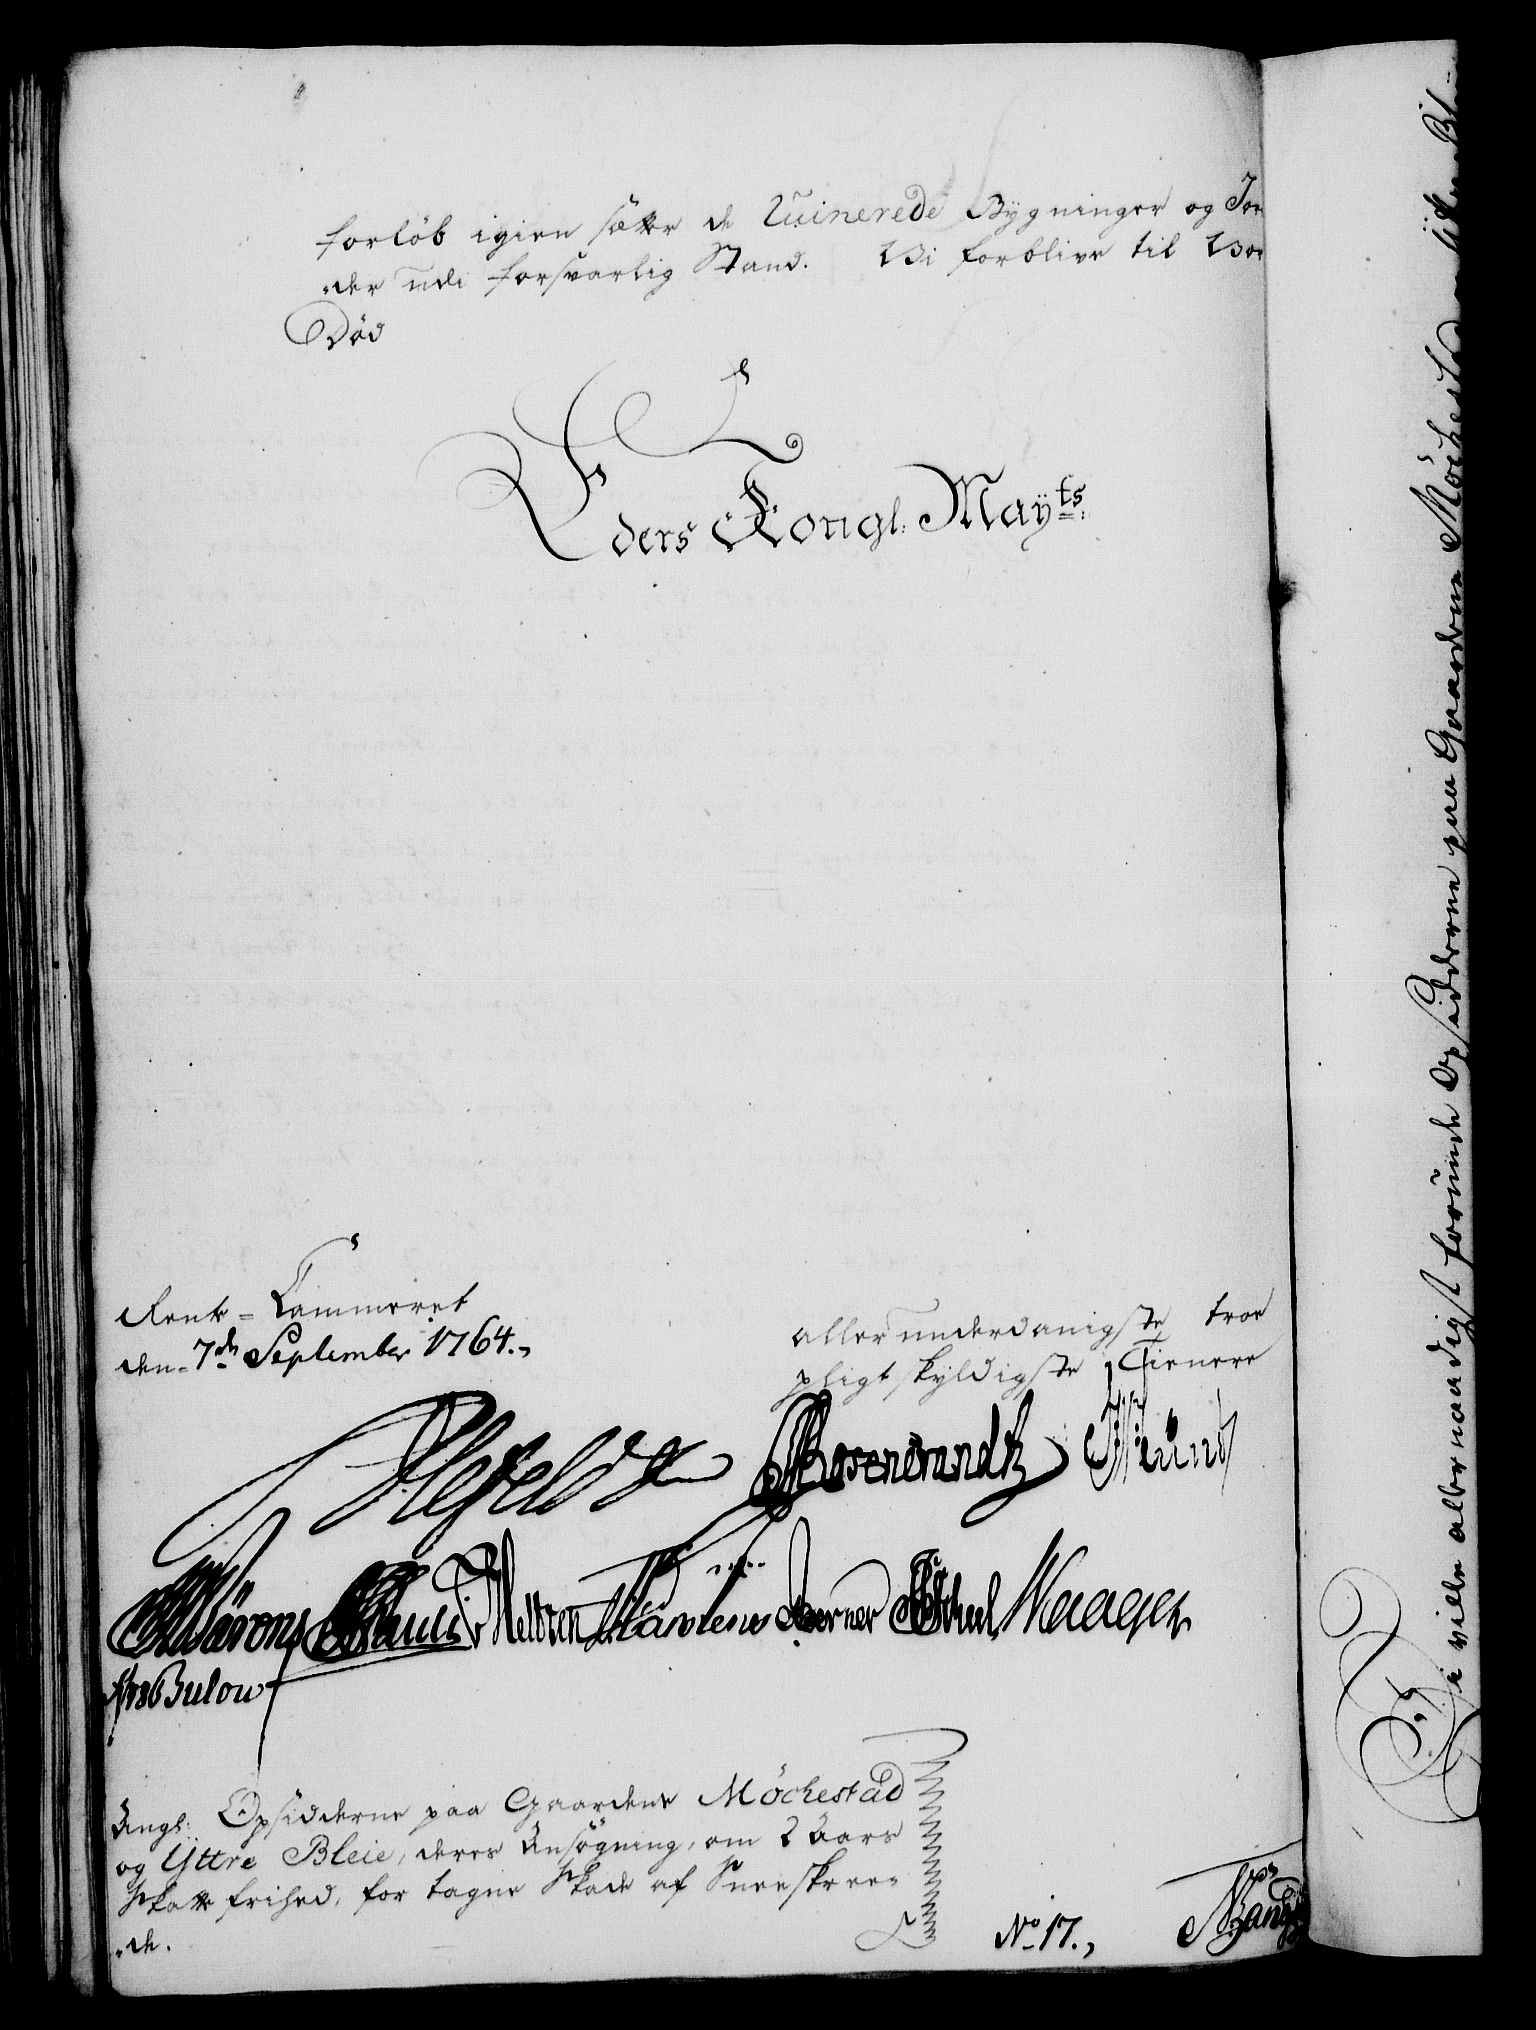 forløb igien sætte de Ruinerede Bygninger og Jor
„der udi forsvarlig Stand. Vi forblive til Vor
Død
Eders Kongl: Mayts:
Rente-Cammeret
den 7de September 1764.,
allerunderdanigste troe
pligtskyldigste Tienere
Rosencrandtz
Pauli Meltzen Berner Waager
Bulow
Angl: Opsidderne paa Gaardene Möchestad
og Yttre Bleie, deres Ansøgning, om 2 Aars
Skatte frihed, for tagne Skade af Sneeskree=
„de.
No 17.,
Vi ville allernaadigst forunde Opsidderne paa Gaardene Möchestad